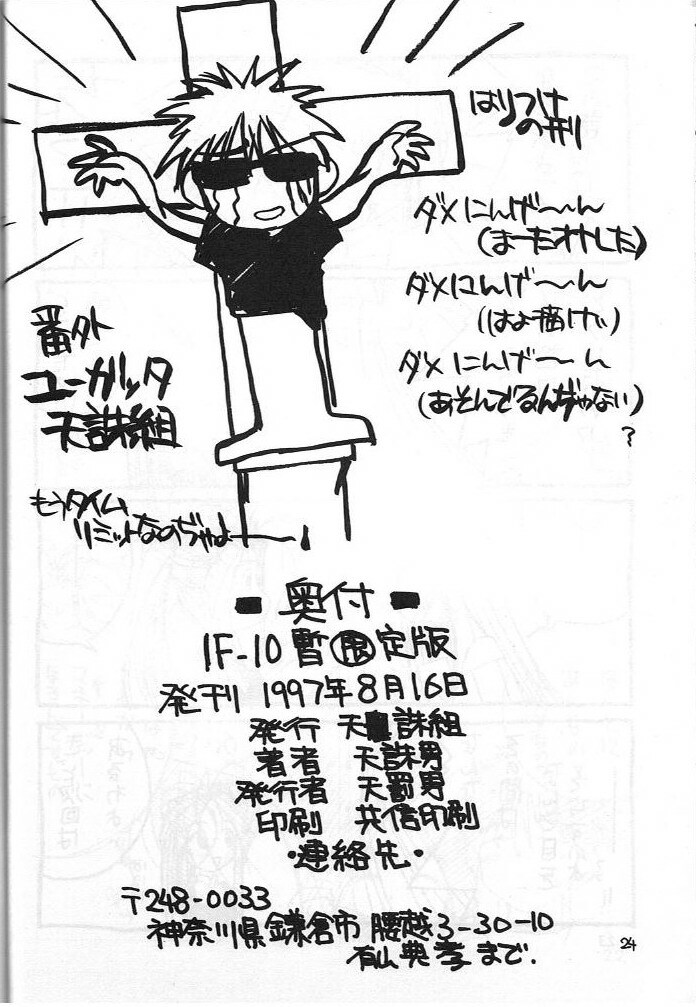 はりつけ
の刑
ダメにんげ〜〜ん
(まーたオナした)
ダメにんげ〜〜ん
(はよ描けい)
ダメにんげ〜〜ん
(あそんでるんぢゃない)
?
番外
ユーガッタ
天誅組
もうタイム
リミットなのぢゃよー!
奥付
IF-10 暫限定版
発刊 1997年8月16日
発行 天誅組
著者 天誅男
発行者 天罰男
印刷 共信印刷
・連絡先・
〒248-0033
神奈川県鎌倉市腰越3-30-10
有山典孝まで.
24